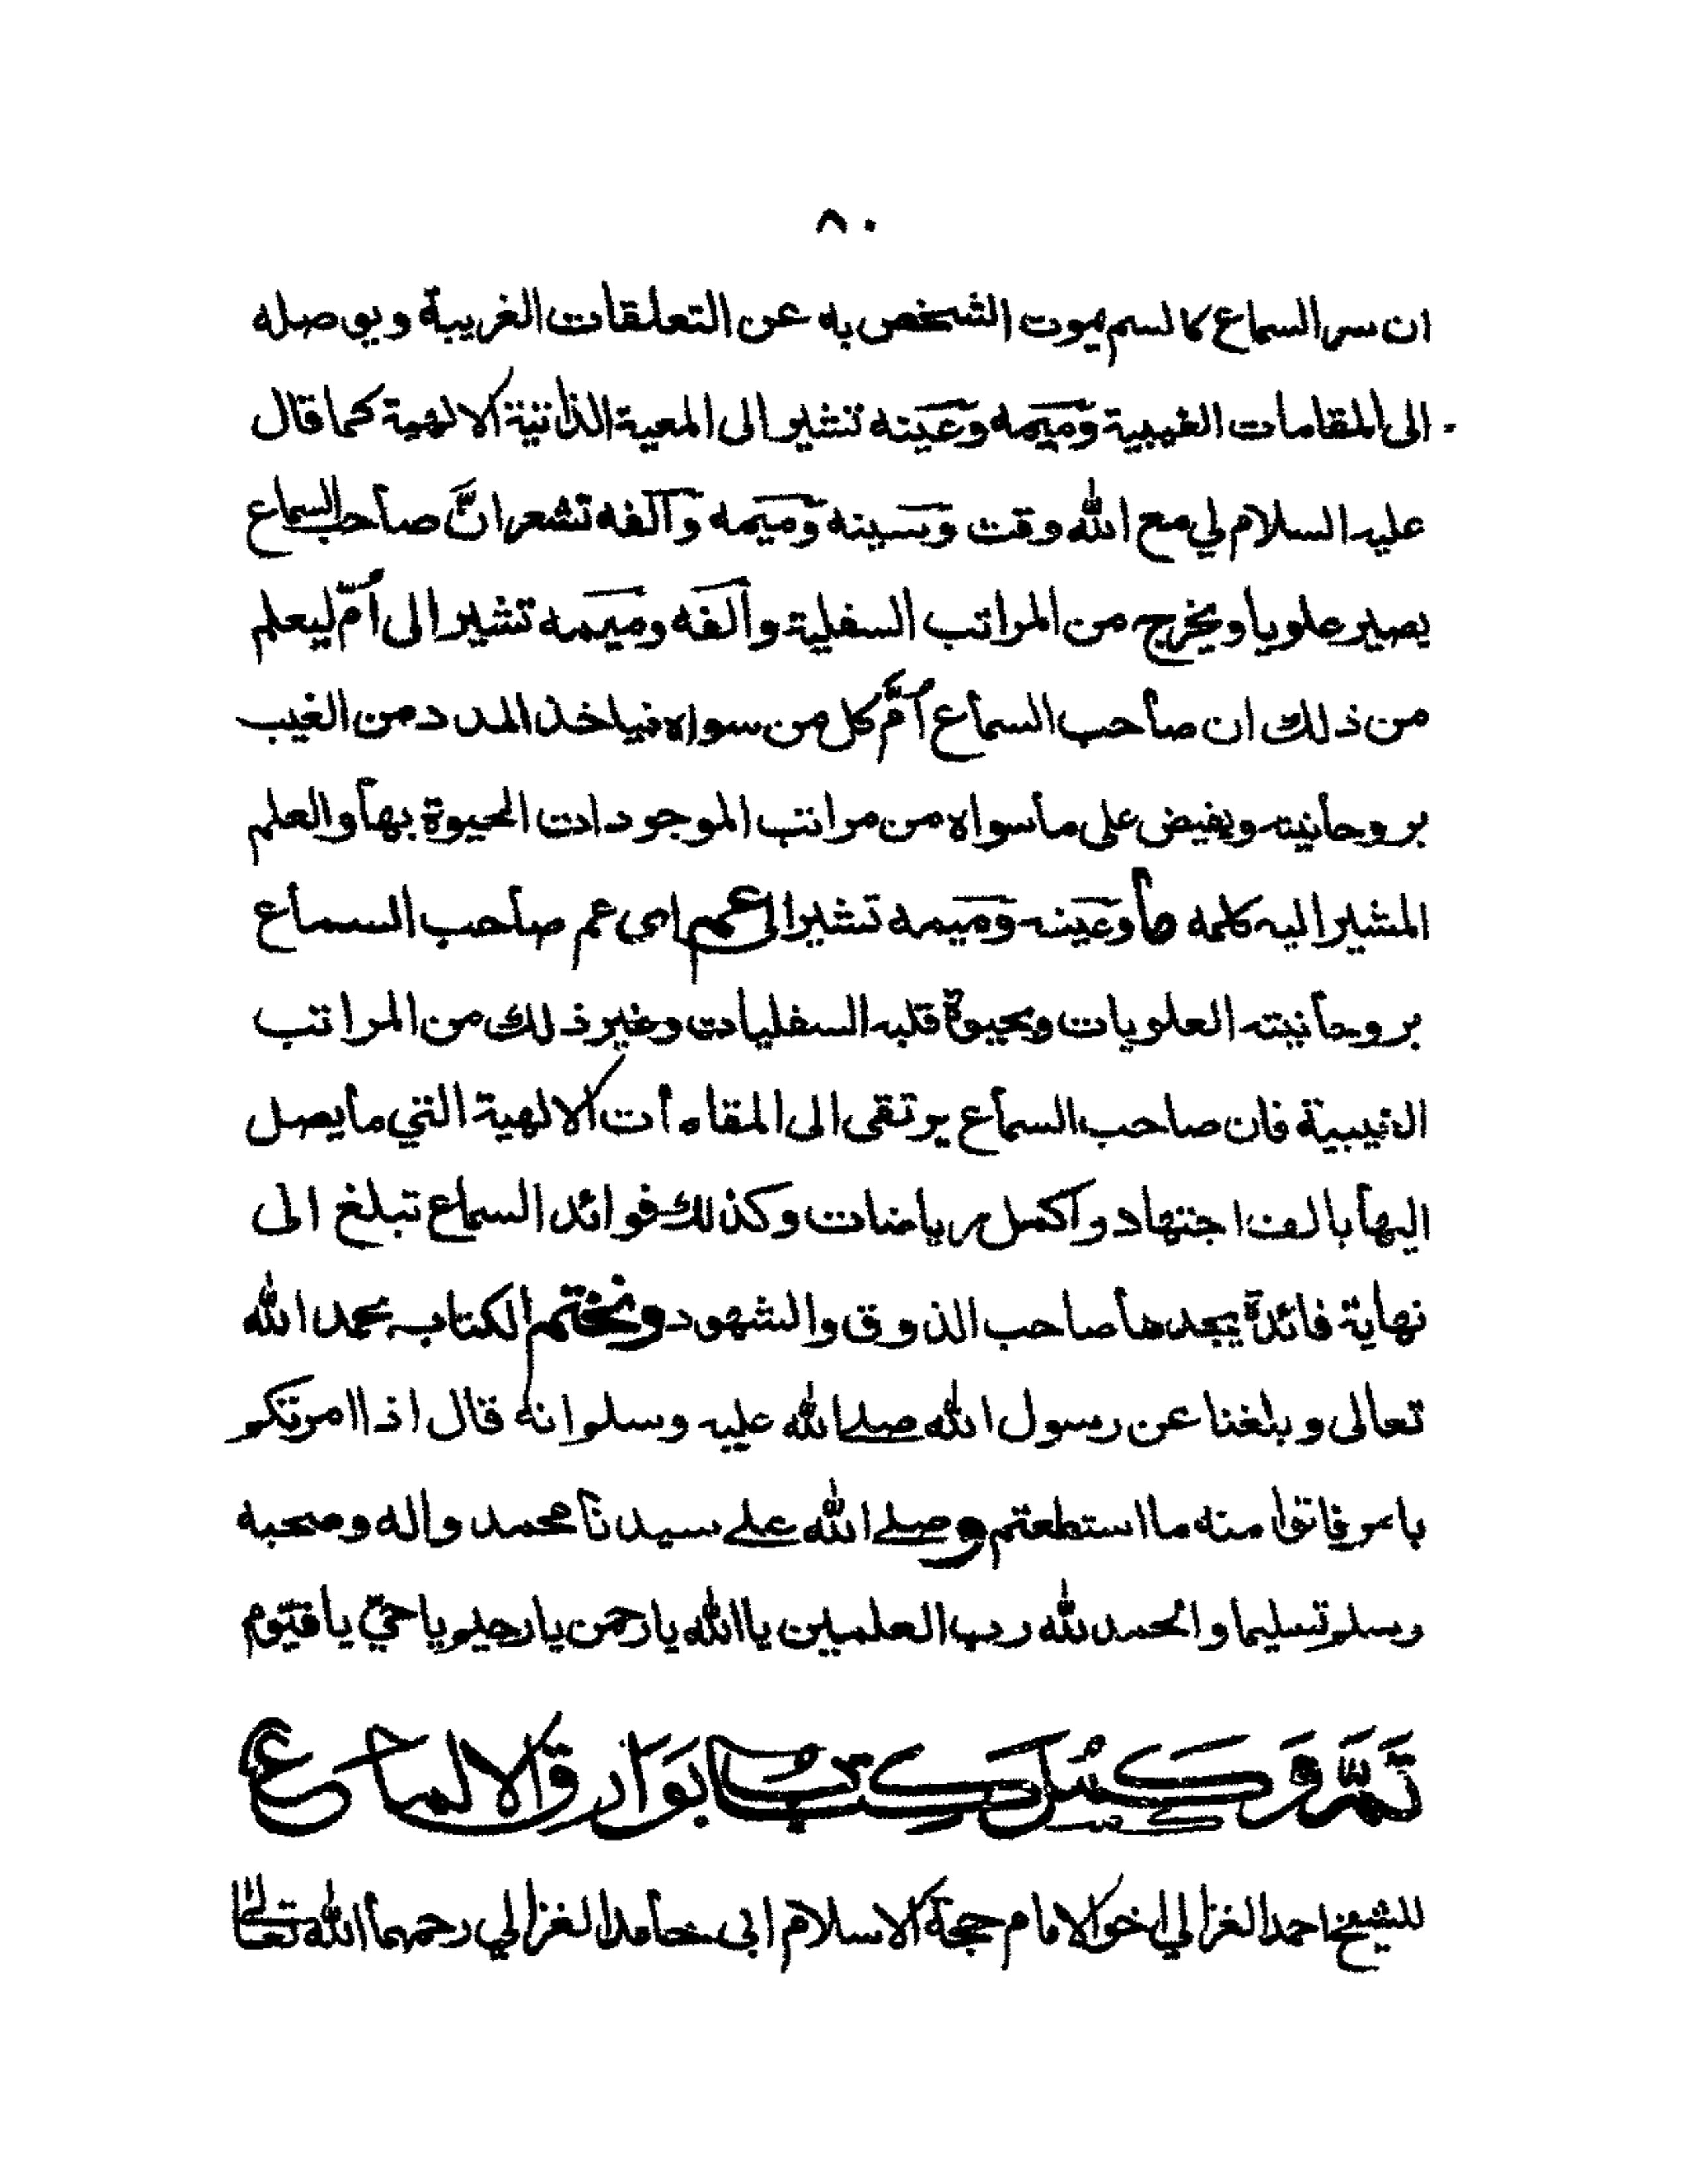 ٨٠
ان سر السماع كالسم يموت الشخص به عن التعلقات الغريبة ويوصله
الى المقامات الغيبية وميمه وعينه تشير الى المعية الذاتية الالهية كما قال
عليه السلام لي مع الله وقت وسينه وميمه وآلفه تشعر انَّ صاحب السماع
يصير علويا ويخرج من المراتب السفلية وآلفه وميمه تشير الى أُمّ ليعلم
من ذلك ان صاحب السماع أُمَّ كل من سواه فياخذ المدد من الغيب
بروحانيته ويفيض على ما سواه من مراتب الموجودات الحيوة بها والعلم
المشير اليه كلمه ما وعينه وميمه تشير الى عم اى عم صاحب السماع
بروحانيته العلويات وبحيوة قلبه السفليات وغير ذلك من المراتب
الغيبية فان صاحب السماع يرتقى الى المقامات الالهية التي ما يصل
اليها بالف اجتهاد واكمل رياضات وكذلك فوائد السماع تبلغ الى
نهاية فائدة يجدها صاحب الذوق والشهود ونختم الكتاب بحمد الله
تعالى وبلغنا عن رسول الله صلى الله عليه وسلم انه قال اذا امرتكم
بامر فاتوا منه ما استطعتم وصلى الله على سيدنا محمد واله وصحبه
وسلم تسليما والحمد لله رب العلمين يا الله يا رحمن يا رحيم يا حيّ يا قيّوم
تَمَّ وَكَمُل كتاب بَوَارق الالماع
للشيخ احمد الغزالي اخو الامام حجة الاسلام ابى حامد الغزالي رحمهما الله تعالى